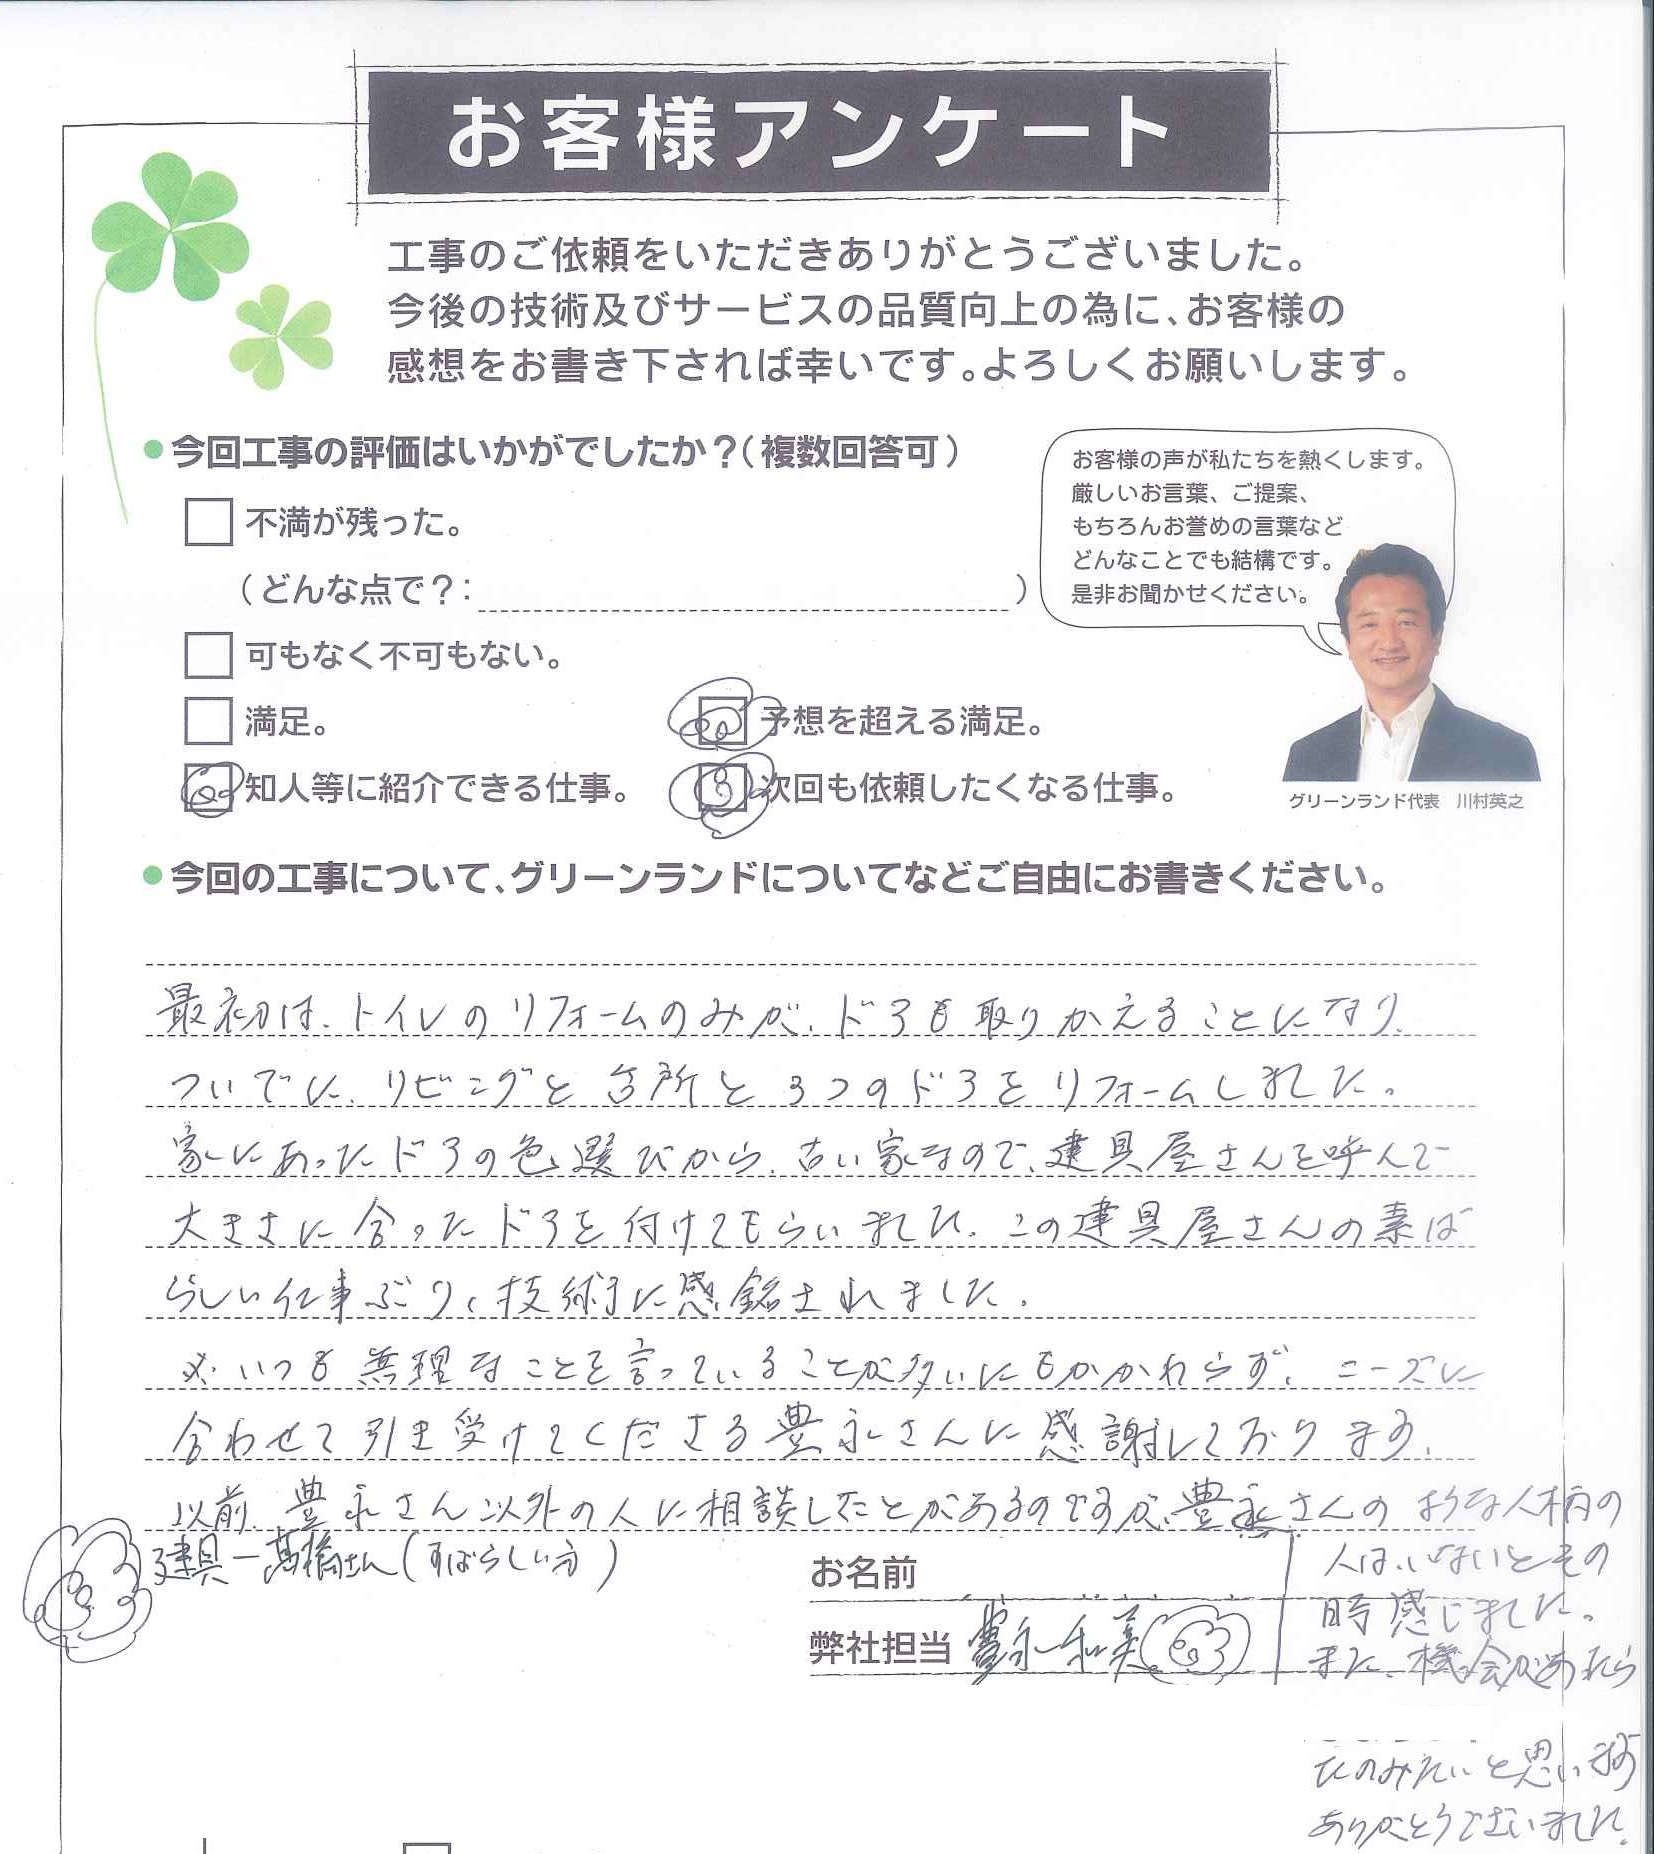 お客様アンケート
工事のご依頼をいただきありがとうございました。
今後の技術及びサービスの品質向上の為に、お客様の
感想をお書き下されば幸いです。よろしくお願いします。
●今回工事の評価はいかがでしたか？（複数回答可）
お客様の声が私たちを熱くします。
厳しいお言葉、ご提案、
もちろんお誉めの言葉など
どんなことでも結構です。
是非お聞かせください。
不満が残った。
（どんな点で？：　　　）
可もなく不可もない。
満足。
予想を超える満足。
知人等に紹介できる仕事。
次回も依頼したくなる仕事。
グリーンランド代表　川村英之
●今回の工事について、グリーンランドについてなどご自由にお書きください。
最初は、トイレのリフォームのみが、ドアも取りかえることになり、
ついでに、リビングと台所と3つのドアをリフォームしました。
家にあったドアの色選びから、古い家なので、建具屋さんを呼んで
大きさに合ったドアを付けてもらいました。この建具屋さんの素ば
らしい仕事ぶり、技術に感銘されました。
※いつも無理なことを言っていることが多いにもかかわらず、ニーズに
合わせて引き受けてくださる豊永さんに感謝しております。
以前、豊永さん以外の人に相談したことがあるのですが、豊永さんの ような人柄の
人は、いないとその
時感じました。
また、機会があったら
たのみたいと思います
ありがとうございました。
建具－髙橋さん（すばらしい方）
お名前
弊社担当 豊永和美